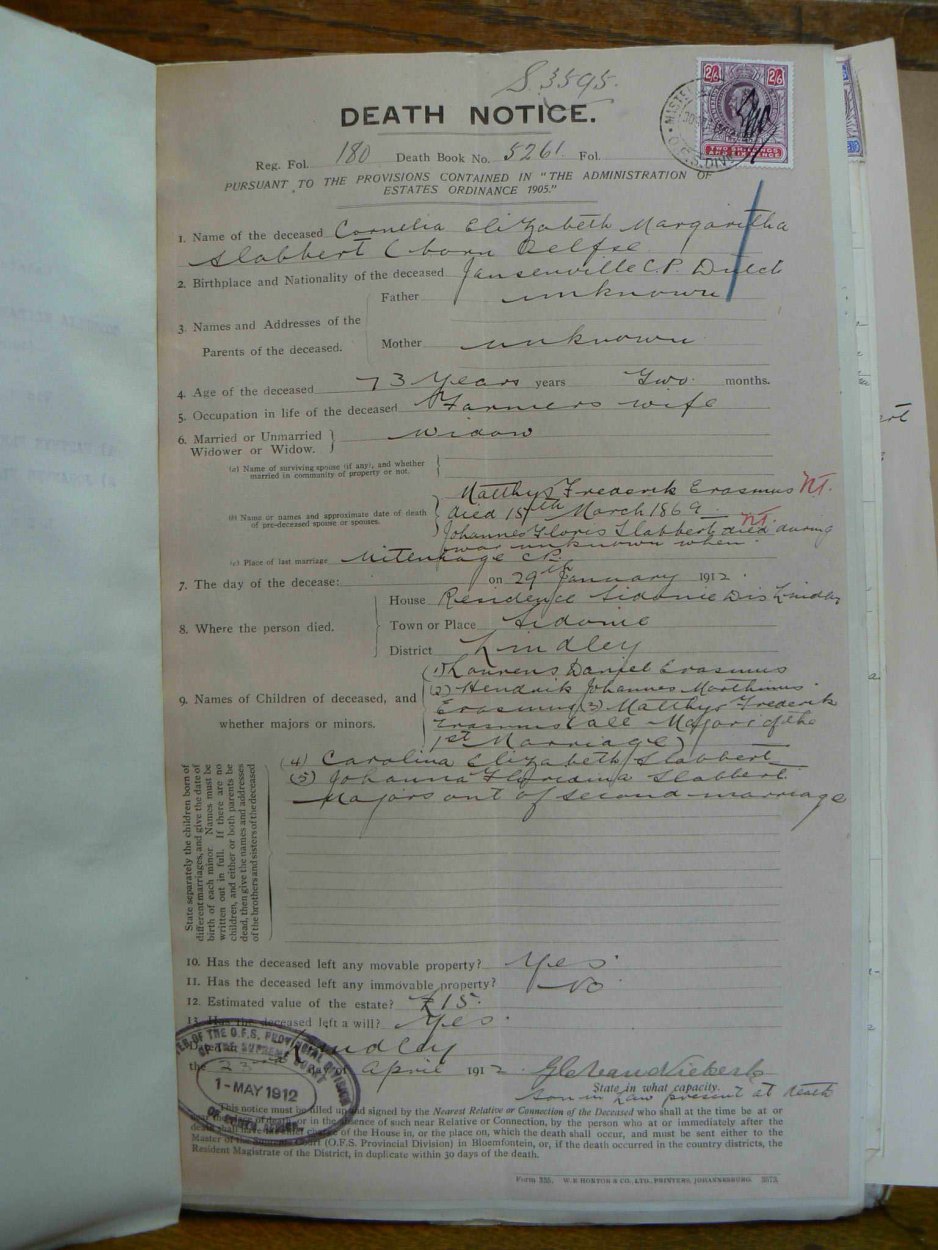 S.3595.
DEATH NOTICE.
Reg. Fol. 180 Death Book No. 5261. Fol.
PURSUANT TO THE PROVISIONS CONTAINED IN "THE ADMINISTRATION OF
ESTATES ORDINANCE 1905."
2/6 2/6
TWO SHILLINGS
AND SIXPENCE
1. Name of the deceased Cornelia Elizabeth Margaritha
Slabbert (born Delfse
2. Birthplace and Nationality of the deceased Jansenville C.P. Dutch
Father unknown
3. Names and Addresses of the
Parents of the deceased.
Mother unknown
4. Age of the deceased 73 Years years Two months.
5. Occupation in life of the deceased Farmers wife
6. Married or Unmarried
Widower or Widow. Widow
(a) Name of surviving spouse (if any), and whether
married in community of property or not.
Matthys Frederik Erasmus NT.
(b) Name or names and approximate date of death
of pre-deceased spouse or spouses. died 15th March 1869 NT.
Johannes Floris Slabbert died during
war unknown when
(c) Place of last marriage Uitenhage C.P.
7. The day of the decease: on 29th January 1912.
House Residence Sidonie Dis Lindley
8. Where the person died. Town or Place Sidonie
District Lindley
(1) Lourens Daniel Erasmus
(2) Hendrik Johannes Marthinus
9. Names of Children of deceased, and Erasmus (3) Matthys Frederik
whether majors or minors. Erasmus (all Majors of the
1st Marriage)
(4) Carolina Elizabeth Slabbert
(5) Johanna Floridina Slabbert
Majors out of second marriage
State separately the children born of
different marriages, and give the date of
birth of each minor. Names must be
written out in full. If there are no
children, and either or both parents be
dead, then give the names and addresses
of the brothers and sisters of the deceased
10. Has the deceased left any movable property? Yes
11. Has the deceased left any immovable property? No
12. Estimated value of the estate? £15.
13. Has the deceased left a will? Yes.
Lindley
the 23rd day of April 1912
State in what capacity.
Son in Law present at death
OF THE O.F.S. PROVINCIAL DIVISION
OF THE SUPREME COURT
1-MAY 1912
This notice must be filled up and signed by the Nearest Relative or Connection of the Deceased who shall at the time be at or
near the place of death, or in the absence of such near Relative or Connection, by the person who at or immediately after the
death shall have charge of the House in, or the place on, which the death shall occur, and must be sent either to the
Master of the Supreme Court (O.F.S. Provincial Division) in Bloemfontein, or, if the death occurred in the country districts, the
Resident Magistrate of the District, in duplicate within 30 days of the death.
Form 355. W. E. HORTOR & CO., LTD., PRINTERS, JOHANNESBURG. 3573.